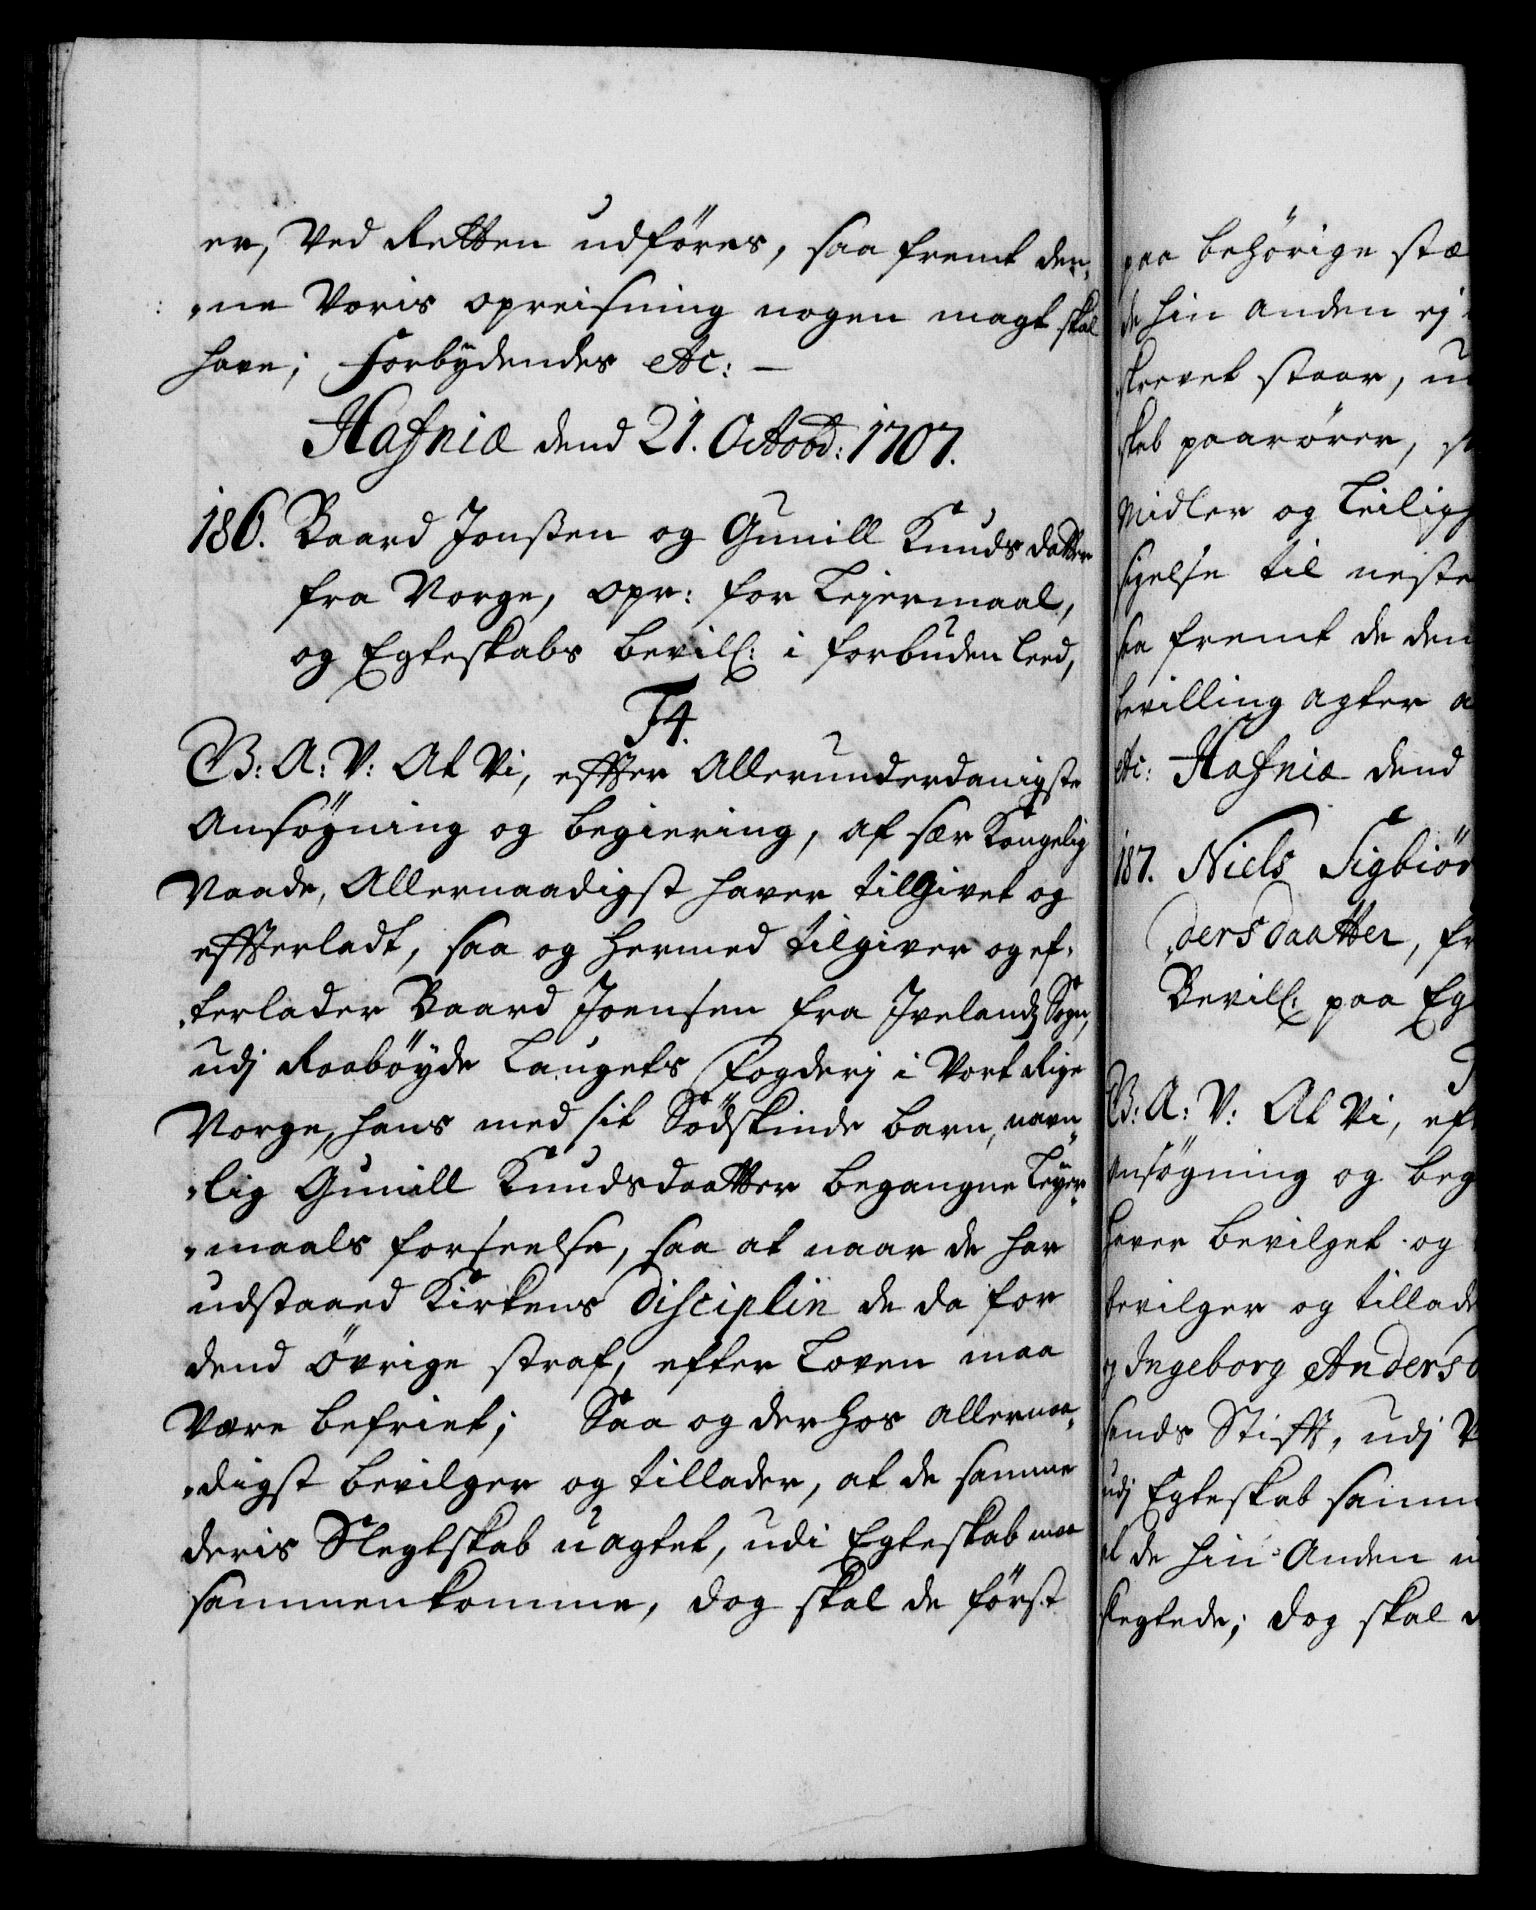 er, Ved Retten udföres, saa fremt den,
,ne Voris opreisning nogen magt skal
have; Forbydendes etc: —
Hafniæ dend 21. Octobr: 1707.
186. Baard Jonßen og Gunill Knudsdatter
fra Norge, opr: for Lejermaal,
og Egteskabs bevill: i forbuden leed,
F4.
G: A: V: At Vi, effter Allerunderdanigste
Ansøgning og begiering, af sær Kongelig
Naade, Allernaadigst haver tilgivet og
effterladt, saa og hermed tilgiver og ef,
,terlader Baard Joensen fra Ivelandz Sogn,
udj Raabøyde Laugets Fogderj i Vort Rige
Norge, hans med sit Sødskinde barn, navn,
,lig Gunill Knudsdaatter begangne Leyer,
,maals forseelse, saa at naar de har
udstaaed Kirkens Disciplin de da for
dend øvrige straf, efter Loven maa
være befriet; Saa og derhos allernaa,
,digst bevilger og tillader, at de samme
deris Slegtskab uagtet, udi Egteskab maa
sammenkomme, dog skal de först
paa behörige stæ
de hin anden ej
skrevet staar,
skab paarörer,
Midler og Leiligh
sigelse til neste
saa fremt de den
bevilling agter
etc: Hafniæ dend
187. Niels Sigbiör
,dersdaatter, fr
Bevill: paa Eg
G: A: V: At Vi, eft
Ansøgning og beg
haver bevilget og
bevilger og tillade
og Ingeborg Andersd
sands Stifft, udj
udj Egteskab samm
at de hin Anden
slegtede; dog skal